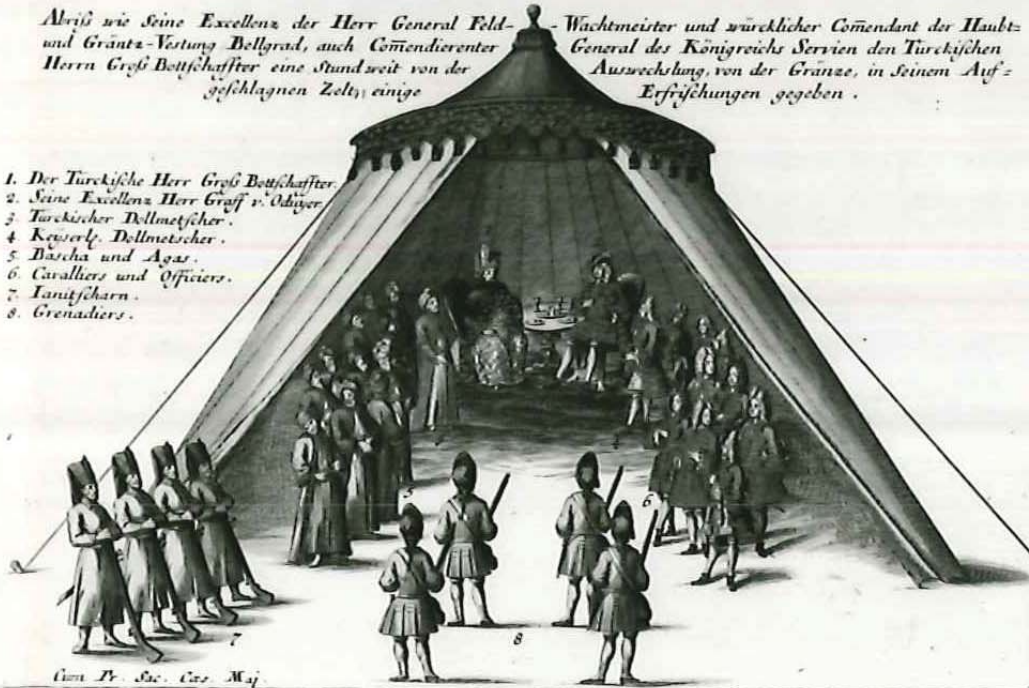 Abriß wie Seine Excellenz der Herr General Feld- - Wachtmeister und würcklicher Com̄endant der Haubt=
und Gräntz-Vestung Bellgrad, auch Com̄endierenter General des Königreichs Servien den Türckischen
Herrn Groß Bottschaffter eine Stund weit von der Auswechslung, von der Gränze, in Seinem Auf=
geschlagnen Zelt, einige Erfrischungen gegeben.
1. Der Türckische Herr Groß Bottschaffter.
2. Seine Excellenz Herr Graff v. Oduyer
3 Türckischer Dollmetscher.
4 Keyserle. Dollmetscher.
5 Bascha und Agas.
6 Cavalliers und Officiers.
7. Ianitscharn.
8. Grenadiers.
4
5
6
7
8
Cum Pr. Sac. Cæs. Maj.